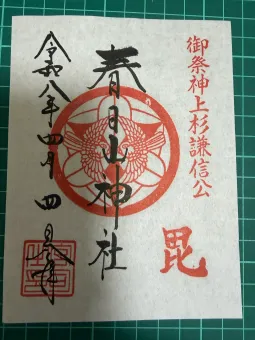 御祭神上杉謙信公
毘
春日山神社
令和八年四月四日拝